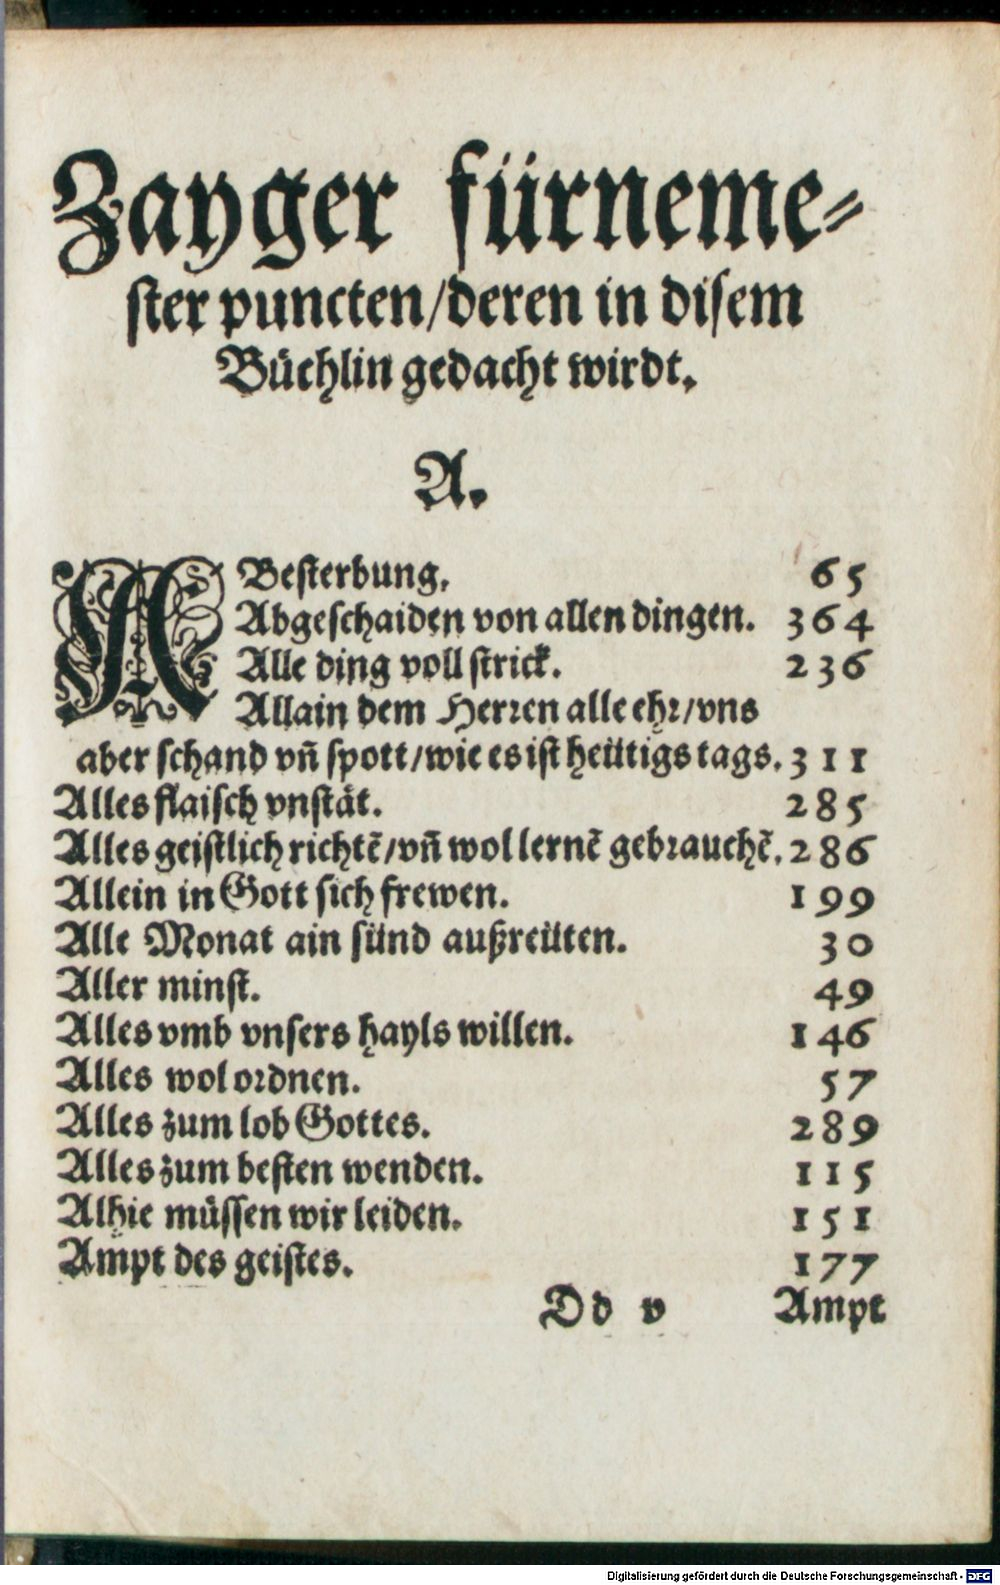 Zayger fürneme-
ster puncten/deren in disem
Büchlin gedacht wirdt.
A.
ABesterbung. 65
Abgeschaiden von allen dingen. 364
Alle ding voll strick. 236
Allain dem Herren alle ehr/vns
aber schand vn̄ spott/wie es ist heütigs tags. 311
Alles flaisch vnstät. 285
Alles geistlich richtē/vn̄ wol lernē gebrauchē. 286
Allein in Gott sich frewen. 199
Alle Monat ain sünd außreüten. 30
Aller minst. 49
Alles vmb vnsers hayls willen. 146
Alles wol ordnen. 57
Alles zum lob Gottes. 289
Alles zum besten wenden. 115
Alhie müssen wir leiden. 151
Ampt des geistes. 177
Dd v Ampt
Digitalisierung gefördert durch die Deutsche Forschungsgemeinschaft - DFG